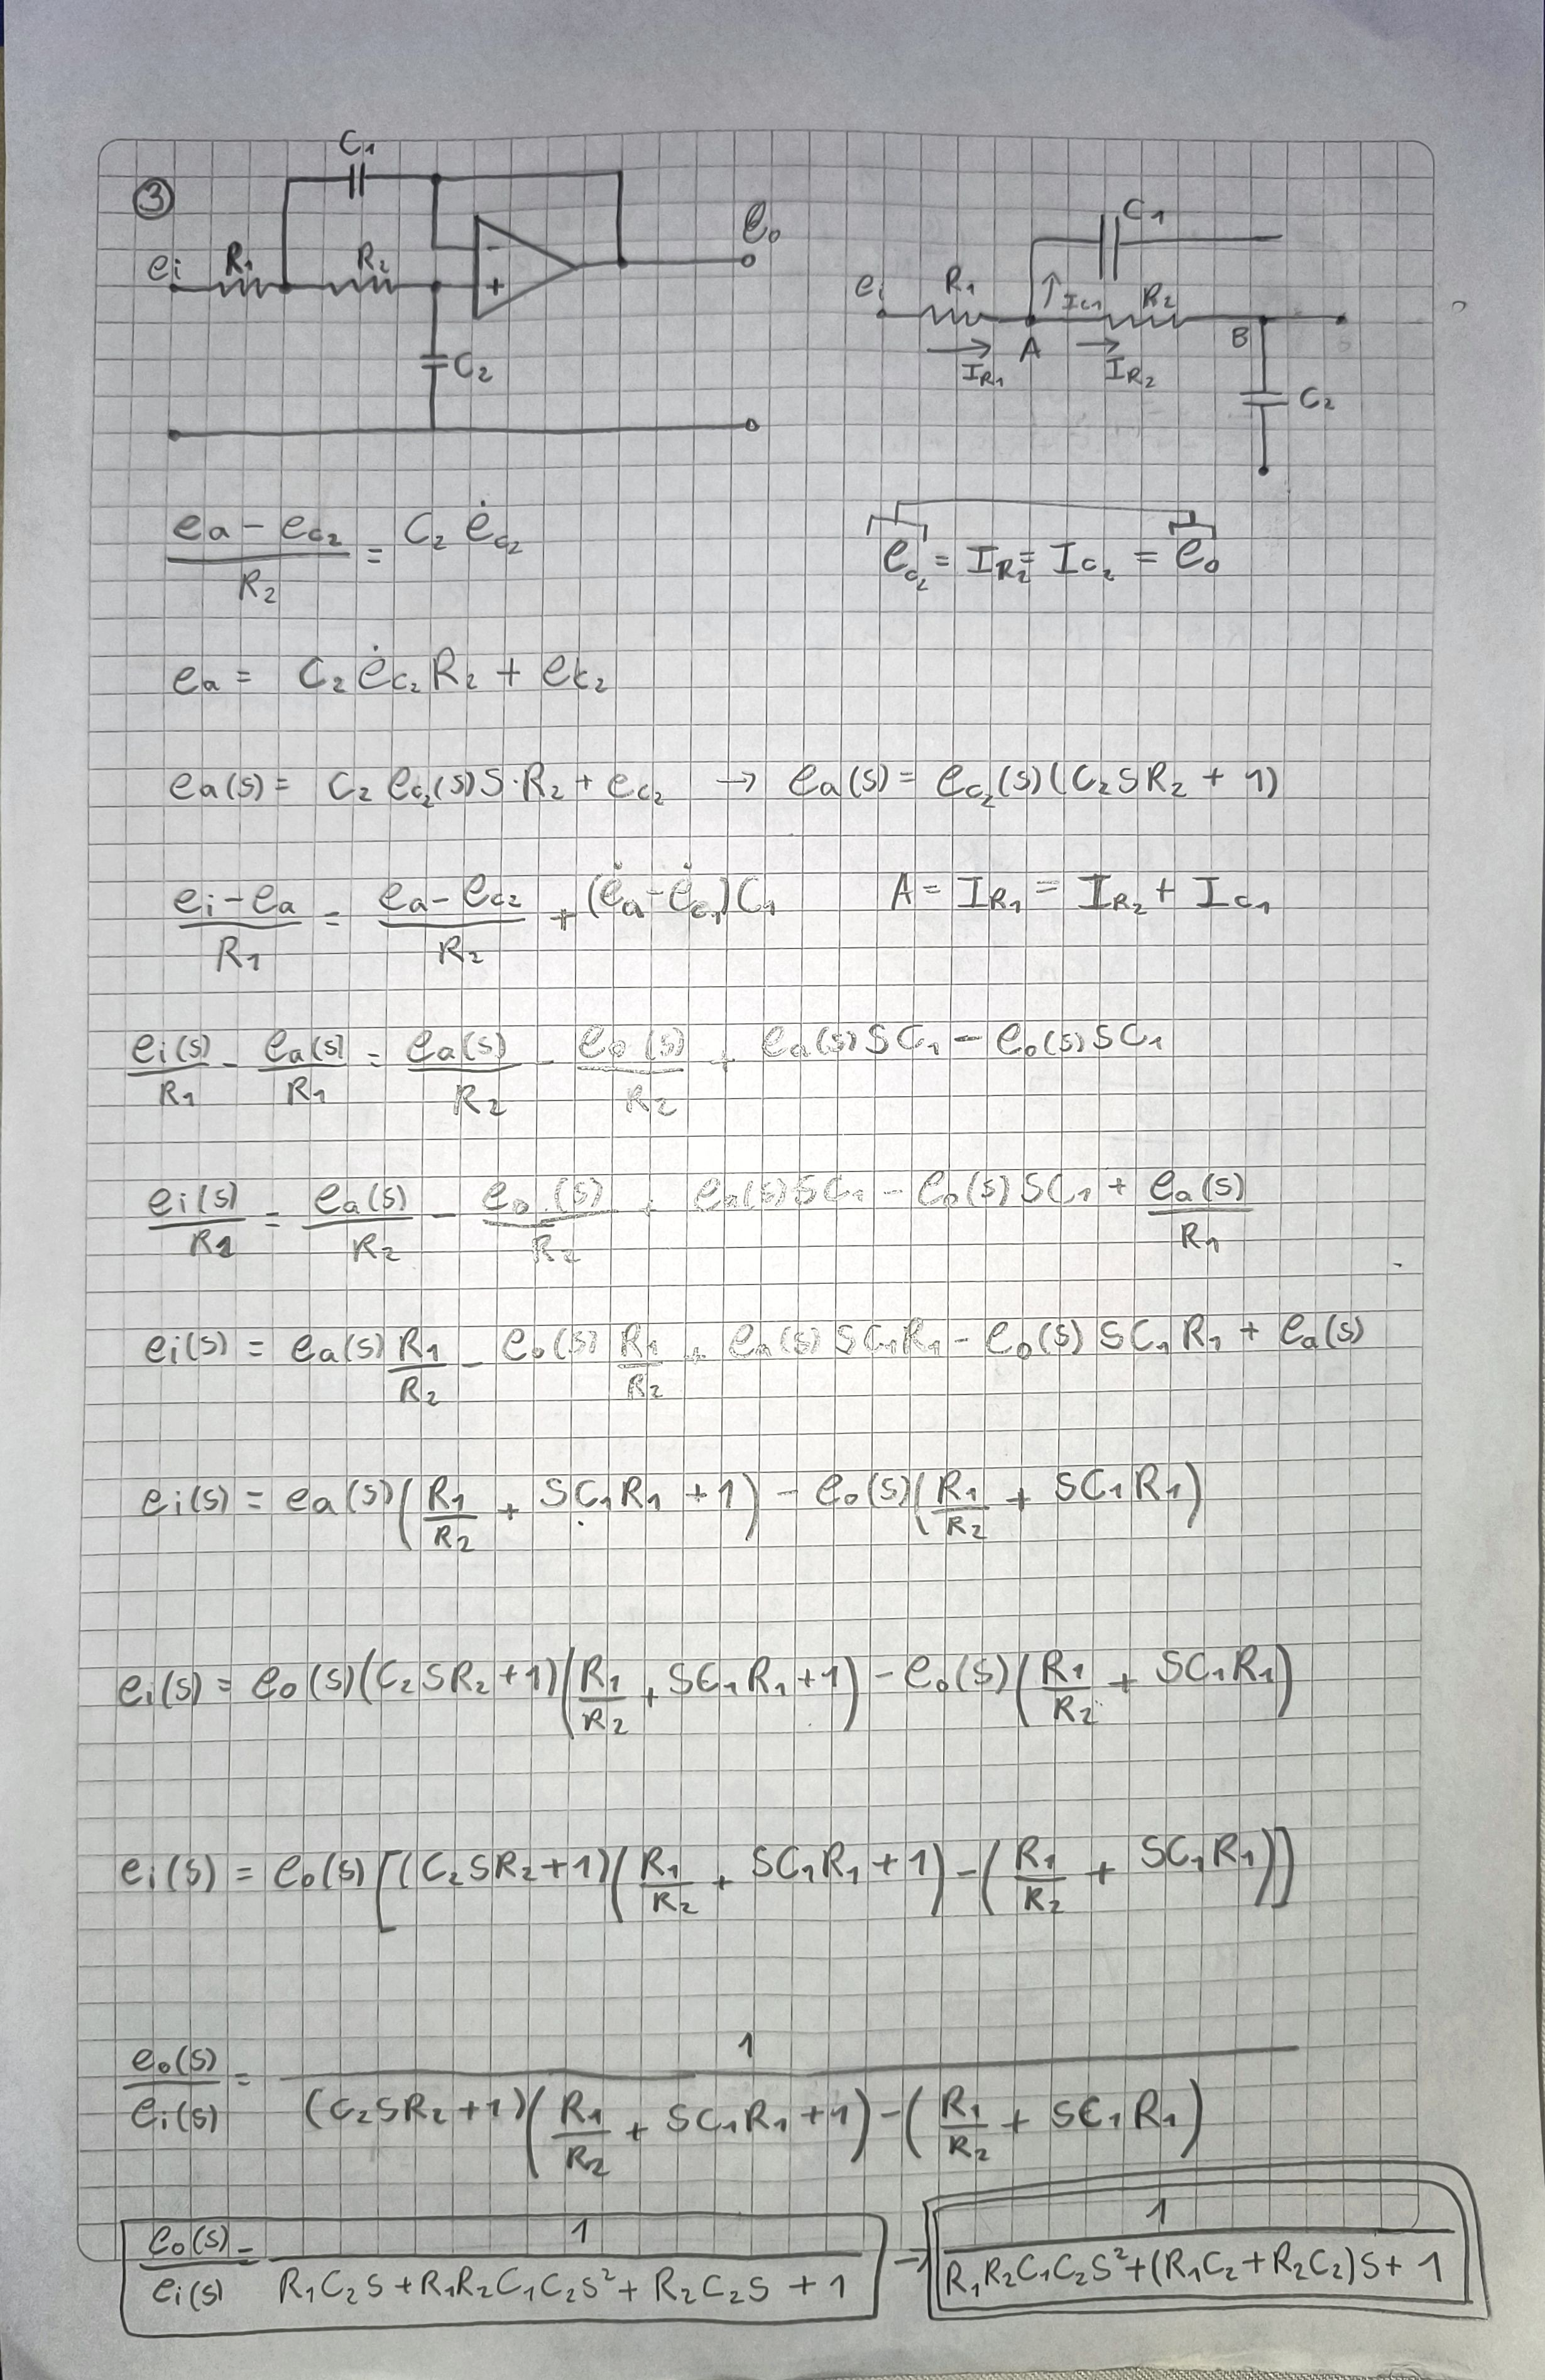 ③
C₁
eᵢ R₁ R₂ - + e₀
C₂
C₁
eᵢ R₁ I_C₁ R₂
I_R₁ A I_R₂ B C₂
(ea - e_c₂)/R₂ = C₂ ė_c₂
e_c₂ = I_R₂ = I_c₂ = e₀
ea = C₂ ė_c₂ R₂ + e_c₂
ea(s) = C₂ e_c₂(s) S·R₂ + e_c₂ → ea(s) = e_c₂(s)(C₂SR₂ + 1)
(eᵢ - ea)/R₁ = (ea - e_c₂)/R₂ + (ėa - ė_c₁)C₁ A = I_R₁ = I_R₂ + I_c₁
eᵢ(s)/R₁ - ea(s)/R₁ = ea(s)/R₂ - e₀(s)/R₂ + ea(s)SC₁ - e₀(s)SC₁
eᵢ(s)/R₁ = ea(s)/R₂ - e₀(s)/R₂ + ea(s)SC₁ - e₀(s)SC₁ + ea(s)/R₁
eᵢ(s) = ea(s) R₁/R₂ - e₀(s) R₁/R₂ + ea(s)SC₁R₁ - e₀(s)SC₁R₁ + ea(s)
eᵢ(s) = ea(s)(R₁/R₂ + SC₁R₁ + 1) - e₀(s)(R₁/R₂ + SC₁R₁)
eᵢ(s) = e₀(s)(C₂SR₂+1)(R₁/R₂ + SC₁R₁+1) - e₀(s)(R₁/R₂ + SC₁R₁)
eᵢ(s) = e₀(s)[(C₂SR₂+1)(R₁/R₂ + SC₁R₁+1) - (R₁/R₂ + SC₁R₁)]
e₀(s)/eᵢ(s) = 1/((C₂SR₂+1)(R₁/R₂ + SC₁R₁+1) - (R₁/R₂ + SC₁R₁))
e₀(s)/eᵢ(s) = 1/(R₁C₂S+R₁R₂C₁C₂S²+R₂C₂S + 1) → 1/(R₁R₂C₁C₂S²+(R₁C₂+R₂C₂)S+1)